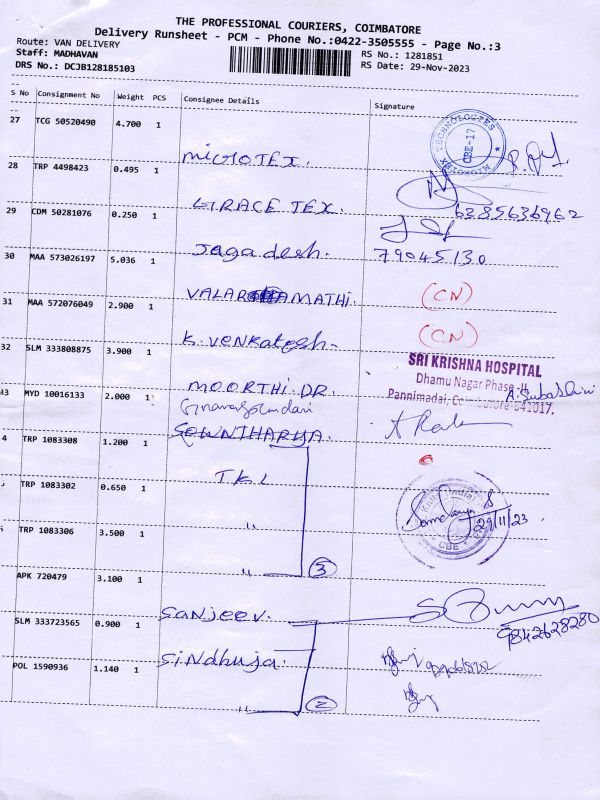 THE PROFESSIONAL COURIERS, COIMBATORE
Delivery Runsheet - PCM - Phone No.:0422-3505555 - Page No.:3
Route: VAN DELIVERY RS No.: 1281851
Staff: MADHAVAN RS Date: 29-Nov-2023
DRS No.: DCJB128185103
S No Consignment No Weight PCS Consignee Details Signature
27 TCG 50520490 4.700 1 MICROTEX. TECHNOLOGIES CBE-17
28 TRP 4498423 0.495 1 GRACE TEX. 6385636962
29 CDM 50281076 0.250 1 Jagadesh. 79045130
30 MAA 573026197 5.036 1 VALARMATHI. (CN)
31 MAA 572076049 2.900 1 K. VENKatesh. (CN)
32 SLM 333808875 3.900 1 MOORTHI. DR. SRI KRISHNA HOSPITAL
Dhamu Nagar Phase-II
Pannimadai, Coimbatore-641017.
A. Subashini
33 MYD 10016133 2.000 1
SOWNTHARYA.
4 TRP 1083308 1.200 1 T.K.L
TRP 1083302 0.650 1 "
29/11/23
CBE
TRP 1083306 3.500 1 " 3
APK 720479 3.100 1 Sanjeev. 9842628280
SLM 333723565 0.900 1 Sindhuja.
POL 1590936 1.140 1 " 2